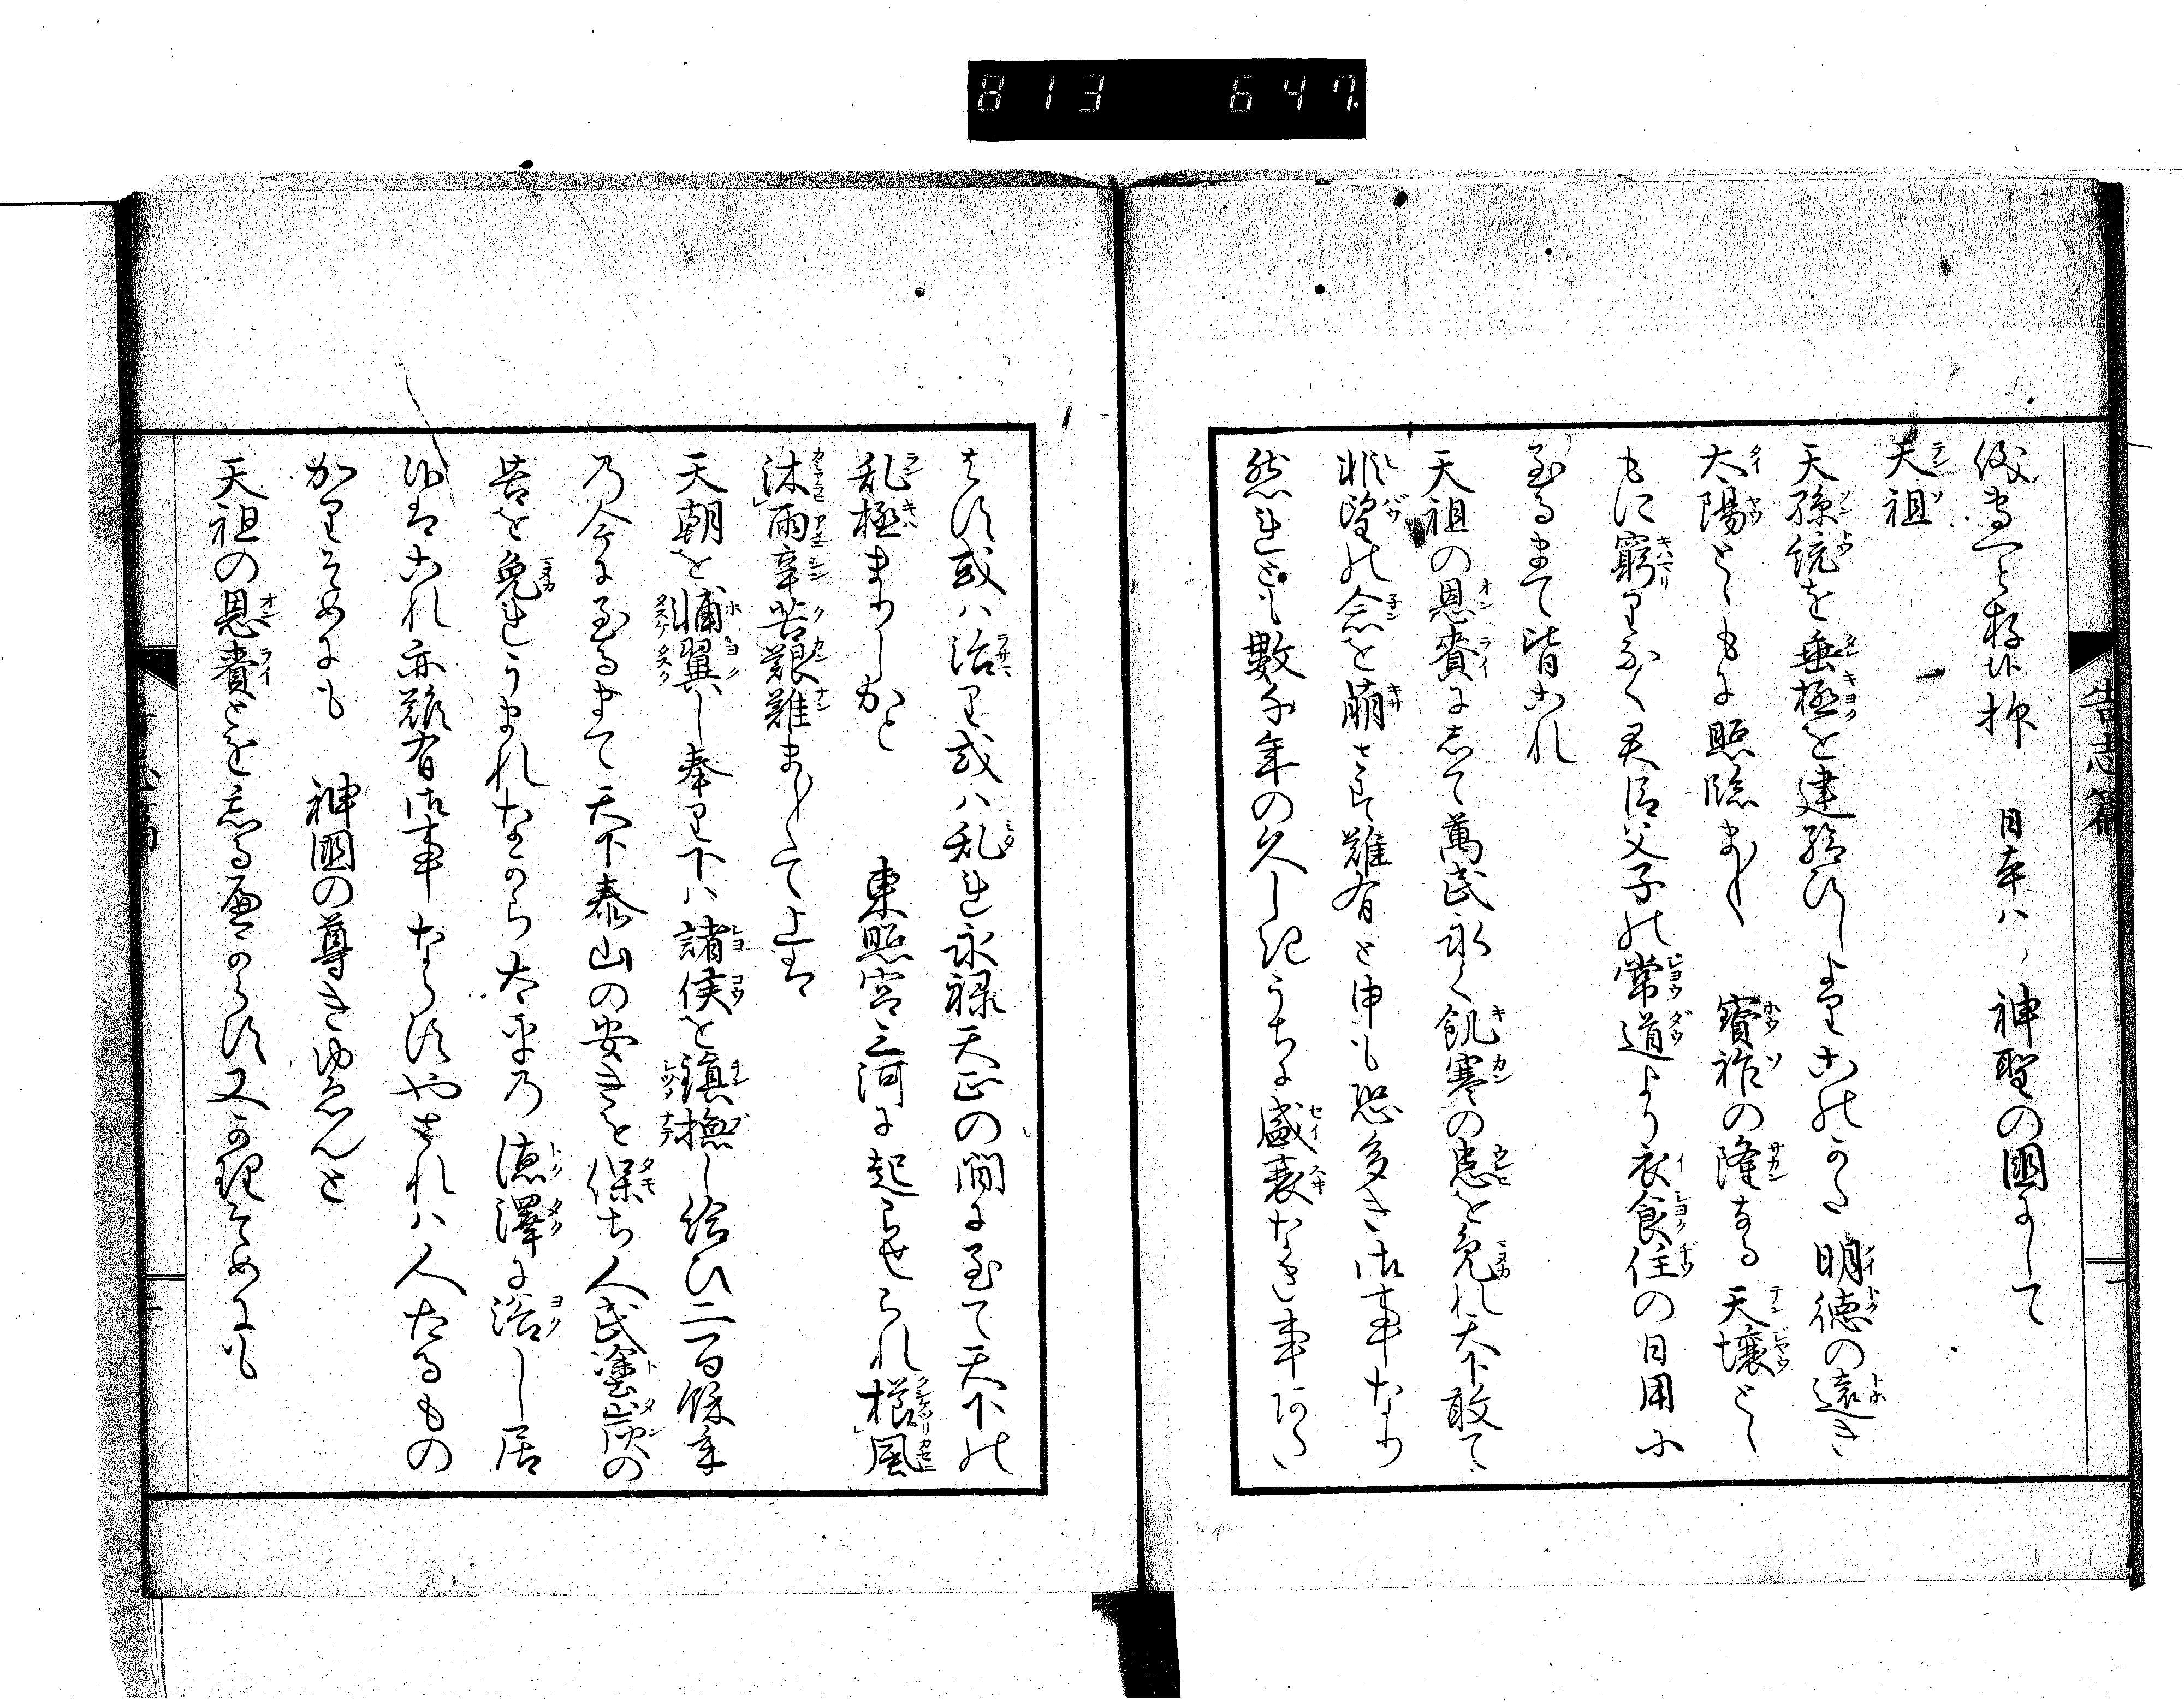 813 647
告志篇
一
儀専一と存候抑　日本ハ神聖の國にして
天祖
天孫統を垂極を建給ひしよりこのかた　明徳の遠き
太陽とゝもに照臨まし〳〵　寶祚の隆なる天壌とゝ
もに窮りなく君臣父子の常道より衣食住の日用に
至るまて皆これ
天祖の恩賚にして萬民永く飢寒の患を免れ天下敢て
非望の念を萌さす難有と申も恐多き御事なり
然れとも數千年の久しきうちに盛衰なき事あた
はす或ハ治り或ハ乱れ永禄天正の間に至て天下の
乱極まりしかと　東照宮三河に起らせられ櫛風
沐雨辛苦艱難まし〳〵て上は
天朝を輔翼し奉り下ハ諸侯を鎮撫し給ひ二百餘年
乃今に至るまて天下泰山の安きを保ち人民塗炭の
苦を免れうまれなから太平乃徳澤に浴し居
候はこれ亦難有御事ならすやされハ人たるもの
かりそめにも　神國の尊きゆゑんと
天祖の恩賚とを忘るへからす又かりそめにも